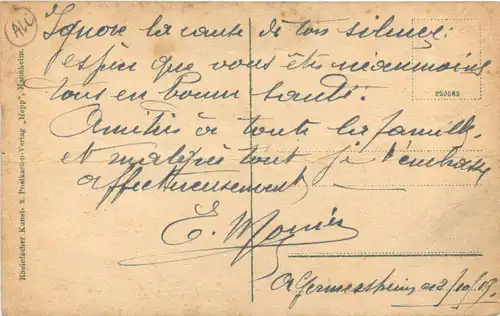 ALC
J'ignore la cause de ton silence;
espère que vous êtes néanmoins
tous en bonne santé.
Amitiés à toute la famille
et malgré tout je t'embrasse
affectueusement
E. Monier
à Germersheim
250585
Rheinischer Kunst- u. Postkarten-Verlag „Hepp", Mannheim.